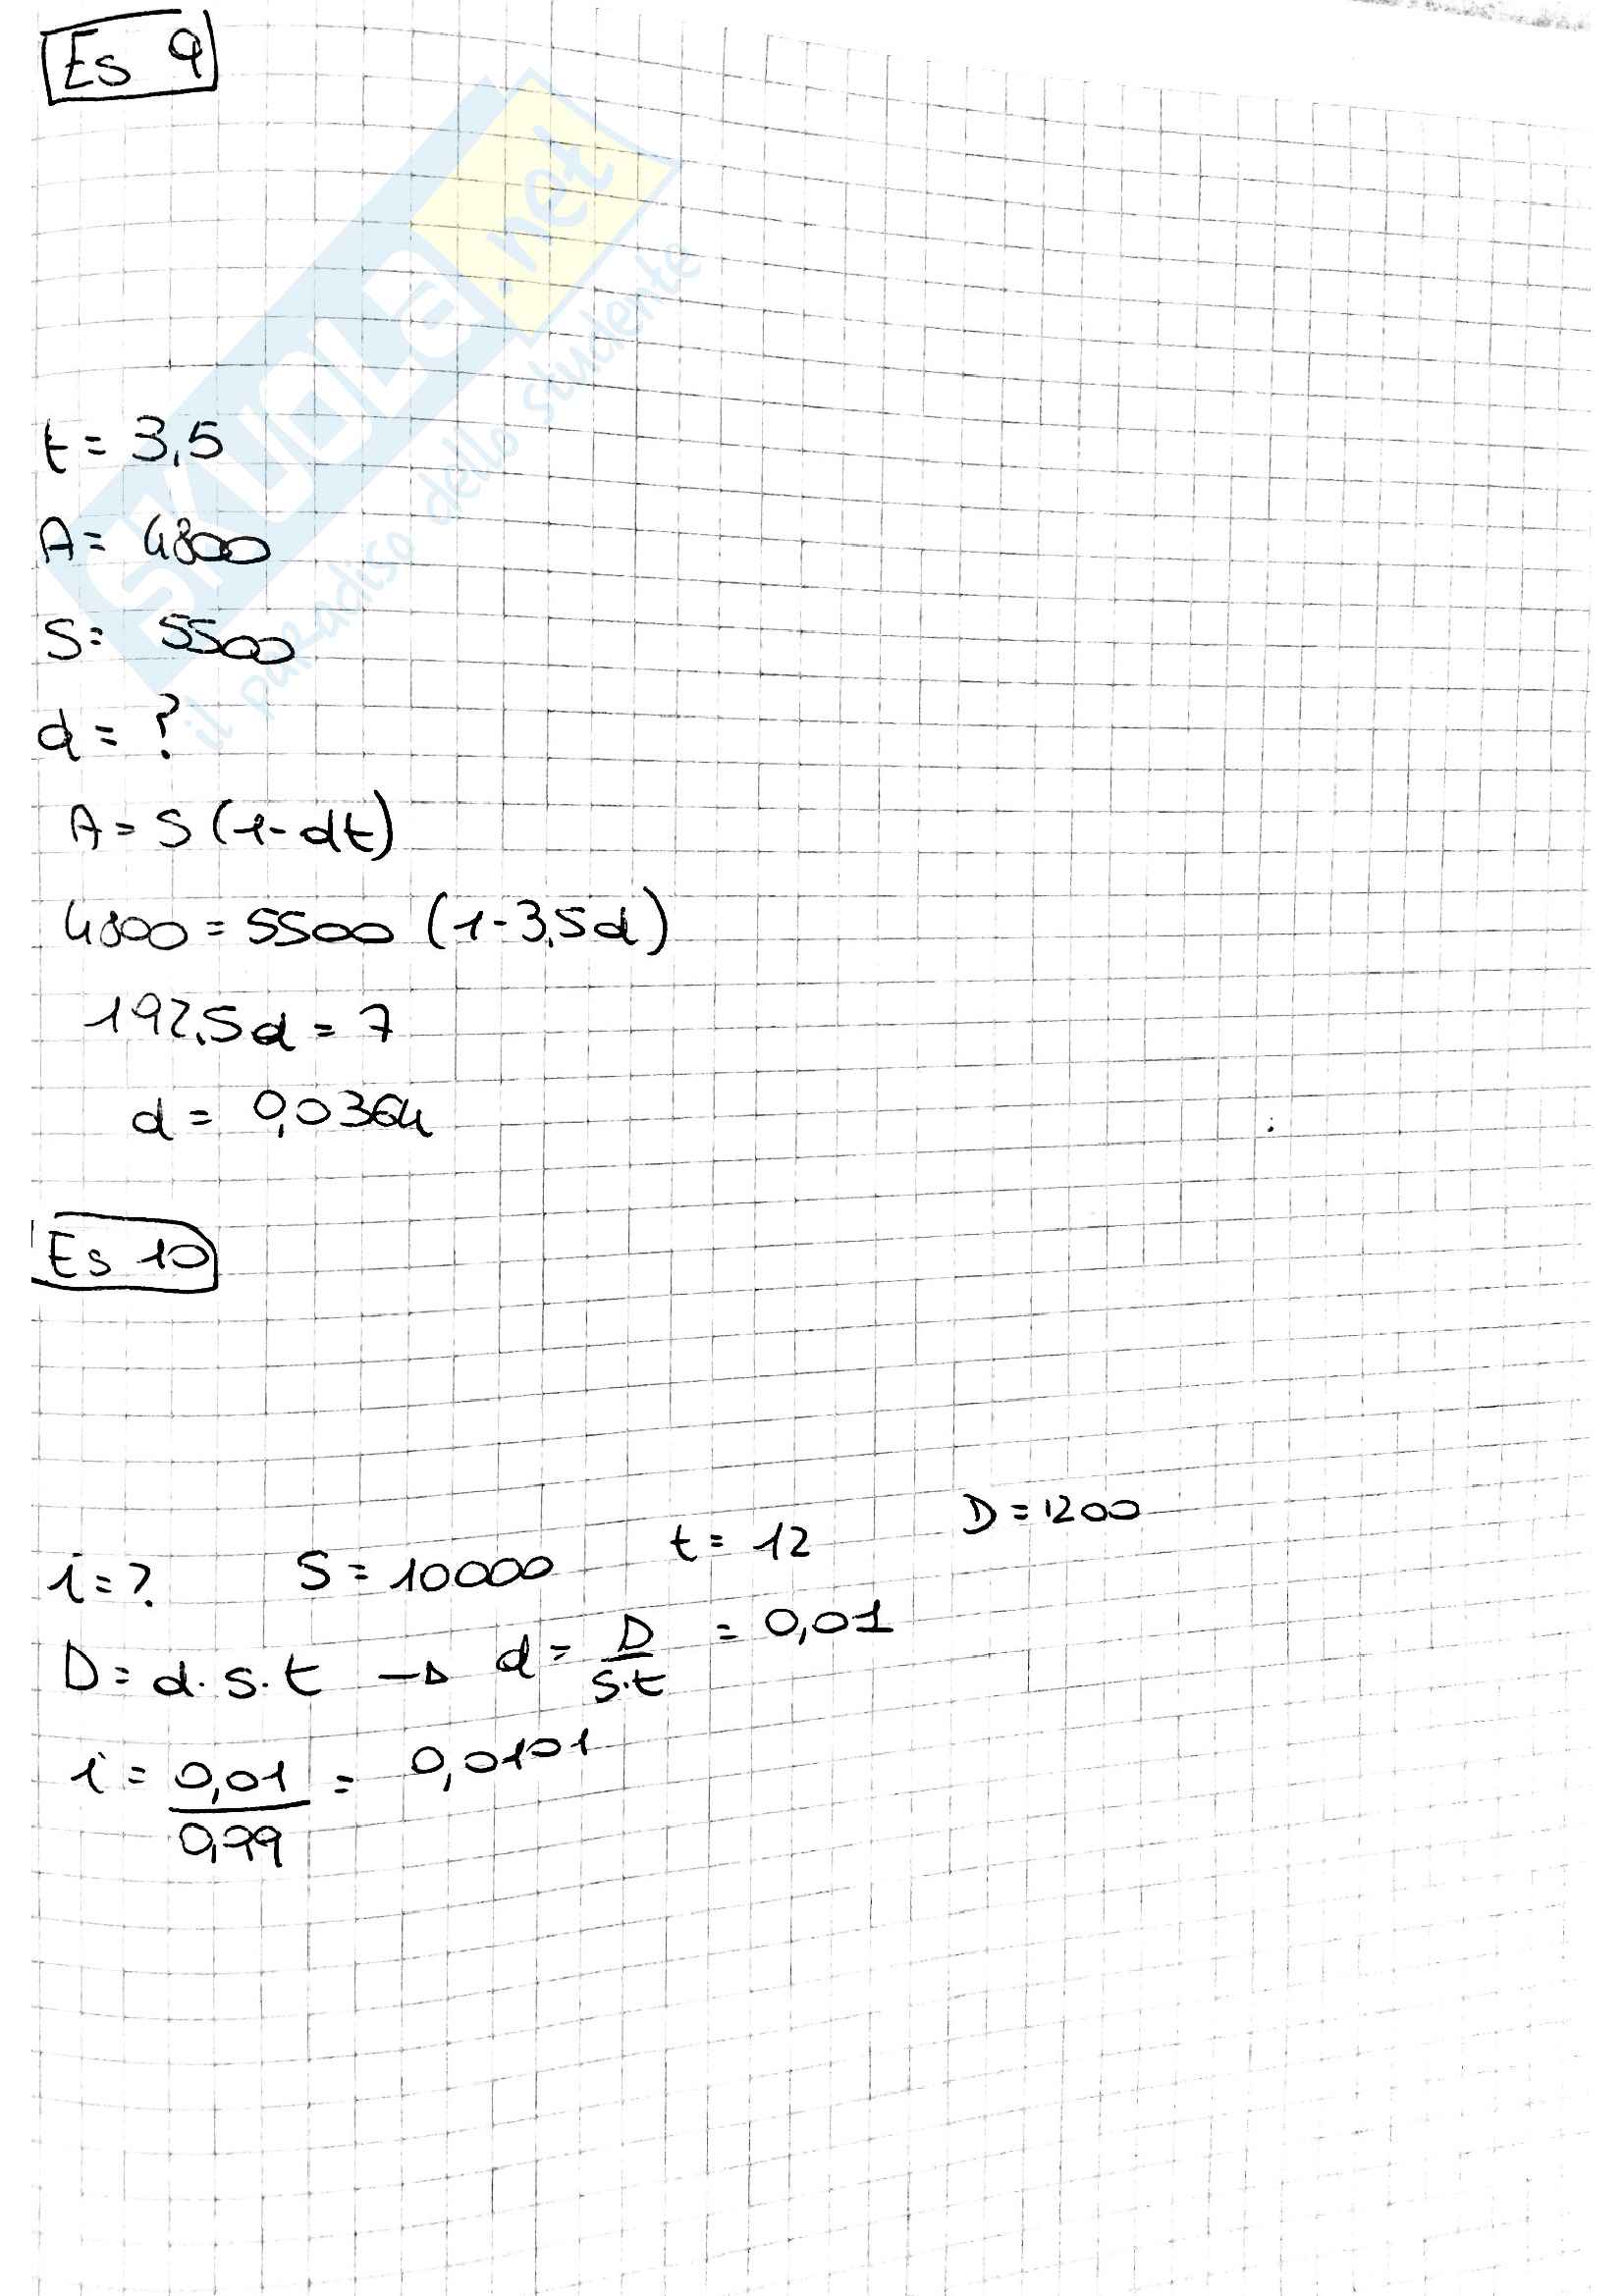 Es 9
SKUOLA.net
il paradiso dello studente
t = 3,5
A = 4800
S = 5500
d = ?
A = S (1 - dt)
4800 = 5500 (1 - 3,5d)
192,5d = 7
d = 0,0364
Es 10
i = ? S = 10000 t = 12 D = 1200
D = d · S · t → d = D / S·t = 0,01
i = 0,01 / 0,99 = 0,0101